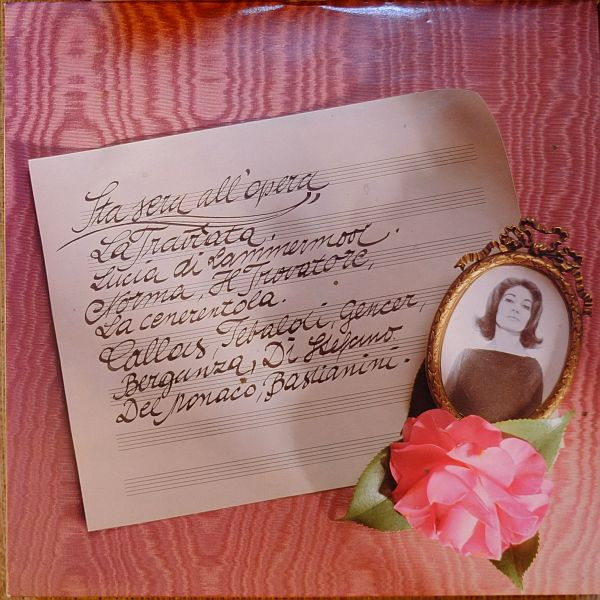 Sta sera all'opera
La Traviata.
Lucia di Lammermool.
Norma, Il Trovatore,
La cenerentola.
Callas, Tebaldi, Gencer,
Berganza, Di Stefano
Del Monaco, Bastianini.